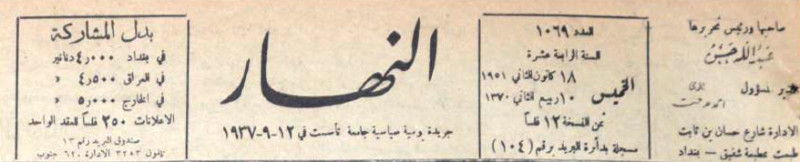 صاحبها ورئيس تحريرها
عبدالله حسن
مدير مسؤول
الادارة شارع حسان بن ثابت
طبعت بمطبعة شفيق - بغداد
العدد ١٠٦٩
السنة الرابعة عشرة
الخميس
١٨ كانون الثاني ١٩٥١
١٠ ربيع الثاني ١٣٧٠
ثمن النسخة ١٢ فلساً
مسجلة بدائرة البريد برقم (١٠٤)
النهار
جريدة يومية سياسية جامعة تأسست في ١٢-٩-١٩٣٧
بدل المشاركة
في بغداد ٤٫٠٠٠ دنانير
في العراق ٤٫٥٠٠ »
في الخارج ٥٫٠٠٠ »
الاعلانات ٢٥٠ فلساً للعقد الواحد
صندوق البريد رقم ١٣
تلفون ٣٢٥٣ الادارة ٦٢٠ جنوب